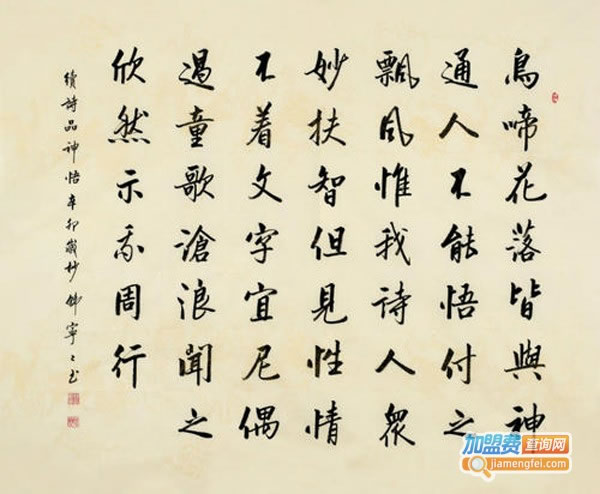 鳥啼花落皆與神
通人不能悟付之
飄風惟我詩人眾
妙扶智但見性情
不着文字宜尼偶
過童歌滄浪聞之
欣然示我周行
續詩品神悟辛卯歲抄
寧〻书
加盟费查询网
jiamengfei.com